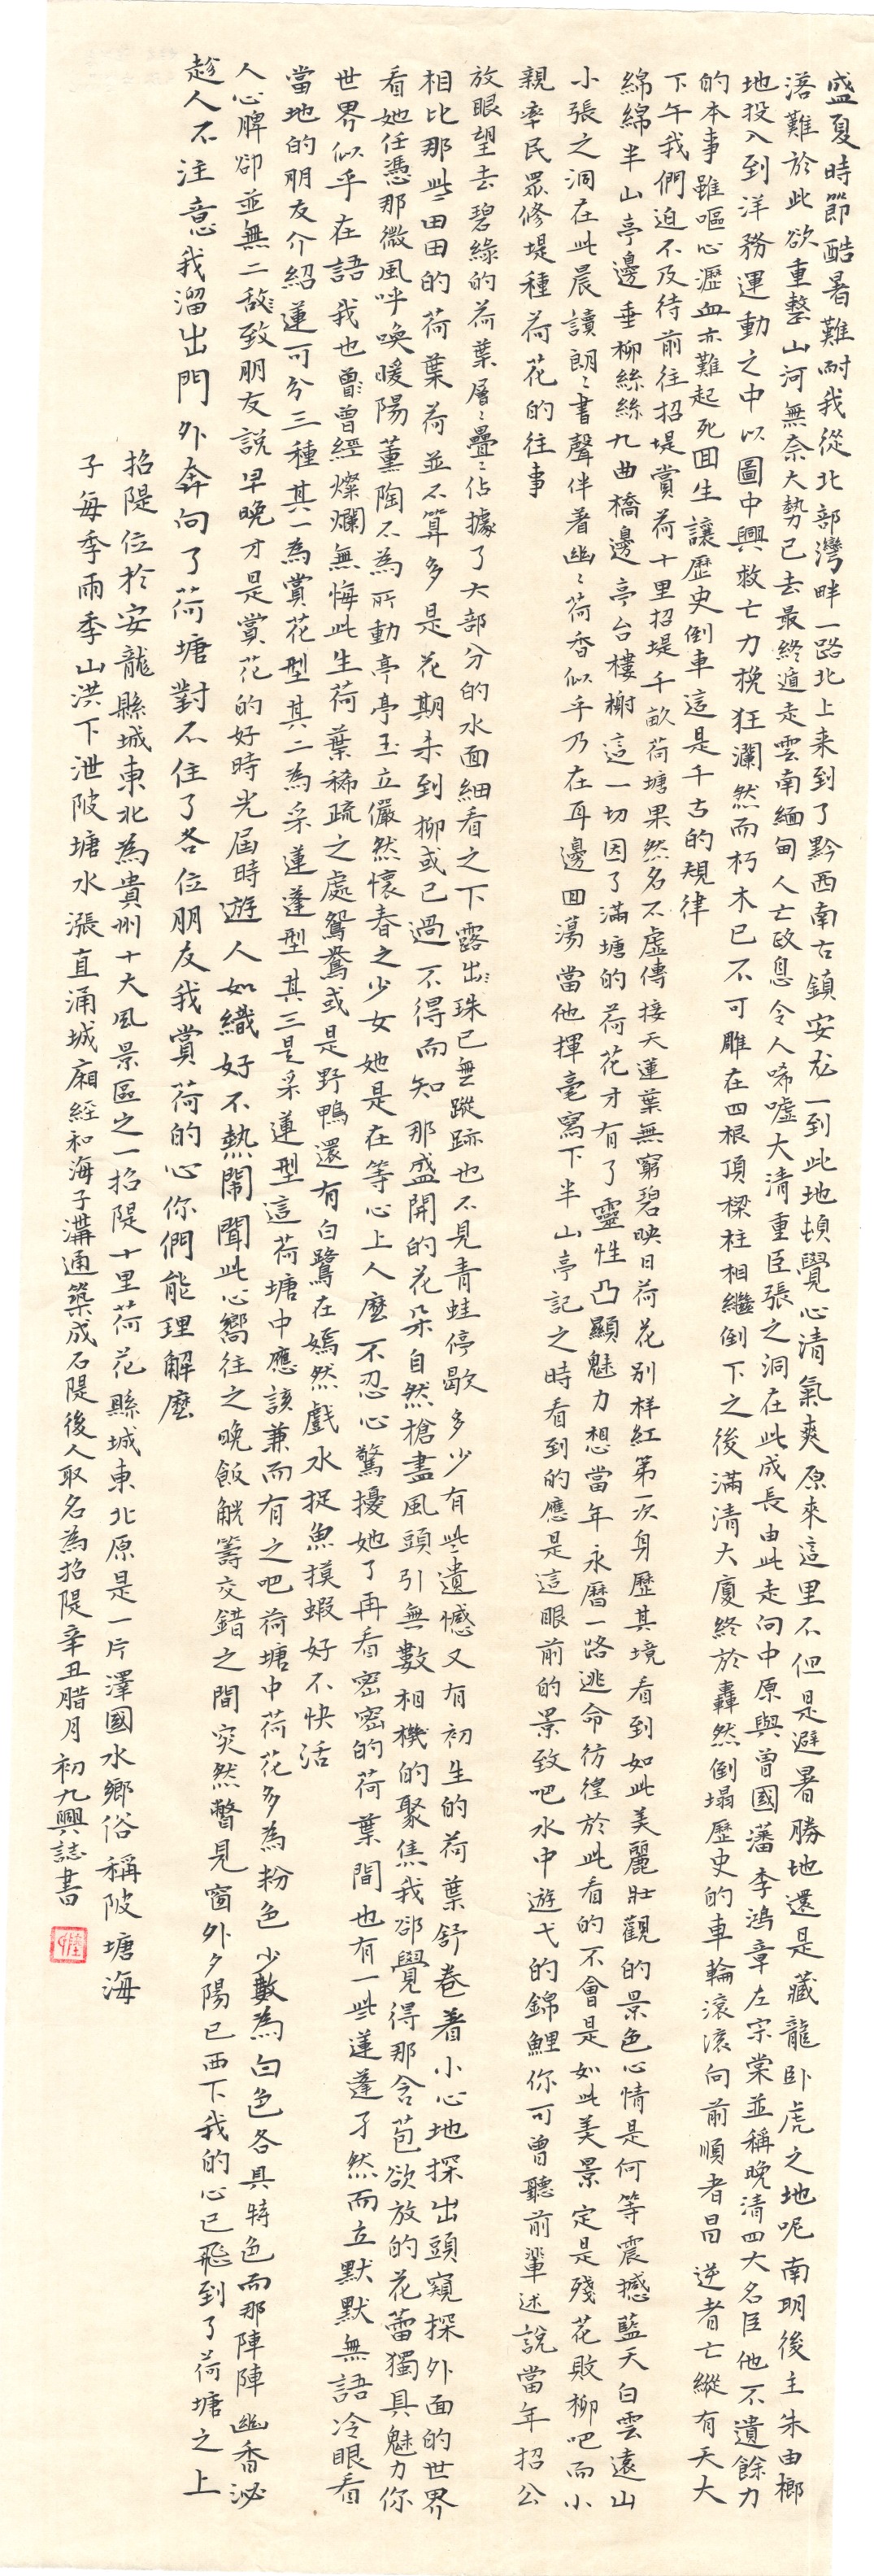 盛夏時節酷暑難耐我從北部灣畔一路北上来到了黔西南古鎮安龙一到此地頓覺心清氣爽原來這里不但是避暑勝地還是藏龍卧虎之地呢南明後主朱由榔
落難於此欲重整山河無奈大勢已去最終逭走雲南緬甸人亡政息令人唏嘘大清重臣張之洞在此成長由此走向中原與曾國藩李鴻章左宗棠並稱晚清四大名臣他不遺餘力
地投入到洋務運動之中以圖中興救亡力挽狂瀾然而朽木已不可雕在四根頂樑柱相繼倒下之後滿清大廈終於轟然倒塌歷史的車輪滚滚向前順者昌逆者亡縱有天大
的本事雖嘔心瀝血亦難起死回生讓歷史倒車這是千古的規律
下午我們迫不及待前往招堤賞荷十里招堤千畝荷塘果然名不虛傳接天蓮葉無窮碧映日荷花别样紅第一次身歷其境看到如此美麗壯觀的景色心情是何等震撼藍天白雲遠山
綿綿半山亭邊垂柳絲絲九曲橋邊亭台樓榭這一切因了滿塘的荷花才有了靈性凸顯魅力想當年永曆一路逃命彷徨於此看的不會是如此美景定是殘花敗柳吧而小
小張之洞在此晨讀朗〻書聲伴着幽〻荷香似乎乃在耳邊回蕩當他揮毫寫下半山亭記之時看到的應是這眼前的景致吧水中遊弋的錦鯉你可曾聽前輩述說當年招公
親率民眾修堤種荷花的往事
放眼望去碧綠的荷葉層〻疊〻佔據了大部分的水面細看之下露出〻珠已無蹤跡也不見青蛙停歇多少有些遺憾又有初生的荷葉舒卷着小心地探出頭窺探外面的世界
相比那些田田的荷葉荷並不算多是花期未到抑或已過不得而知那盛開的花朵自然槍盡風頭引無數相機的聚焦我卻覺得那含苞欲放的花蕾獨具魅力你
看她任憑那微風呼喚暖陽薰陶不為所動亭亭玉立儼然懷春之少女她是在等心上人麼不忍心驚擾她了再看密密的荷葉間也有一些蓮蓬孑然而立默默無語冷眼看
世界似乎在語我也曾〻曾經燦爛無悔此生荷葉稀疏之處鴛鴦或是野鴨還有白鷺在嫣然戲水捉魚摸蝦好不快活
當地的朋友介紹蓮可分三種其一為賞花型其二為采蓮蓬型其三是采蓮型這荷塘中應該兼而有之吧荷塘中荷花多為粉色少數為白色各具特色而那陣陣幽香泌
人心脾卻並無二致朋友說早晚才是賞花的好時光屆時遊人如織好不熱鬧聞此心嚮往之晚飯觥籌交錯之間突然瞥見窗外夕陽已西下我的心已飛到了荷塘之上
趁人不注意我溜出門外奔向了荷塘對不住了各位朋友我賞荷的心你們能理解麼
招隄位於安龍縣城東北為貴州十大風景區之一招隄十里荷花縣城東北原是一片澤國水鄉俗稱陂塘海
子每季雨季山洪下泄陂塘水漲直涌城廂經和海子溝通築成石隄後人取名為招隄辛丑腊月初九興誌書